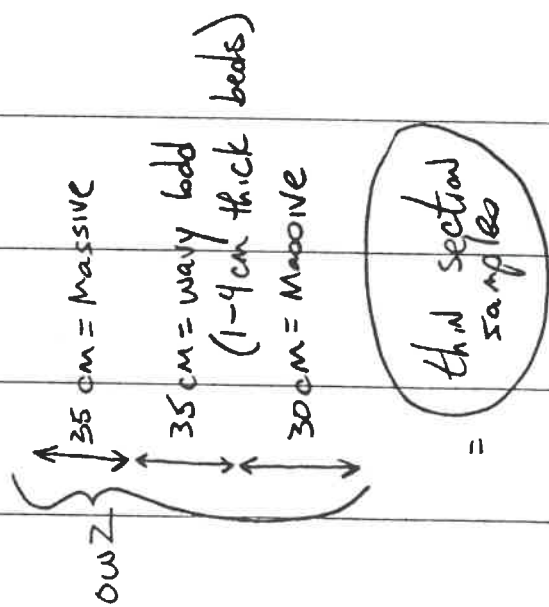 OWZ
35 cm = Massive
35 cm = wavy bdd
(1-4cm thick beds)
30 cm = Massive
= thin section
samples